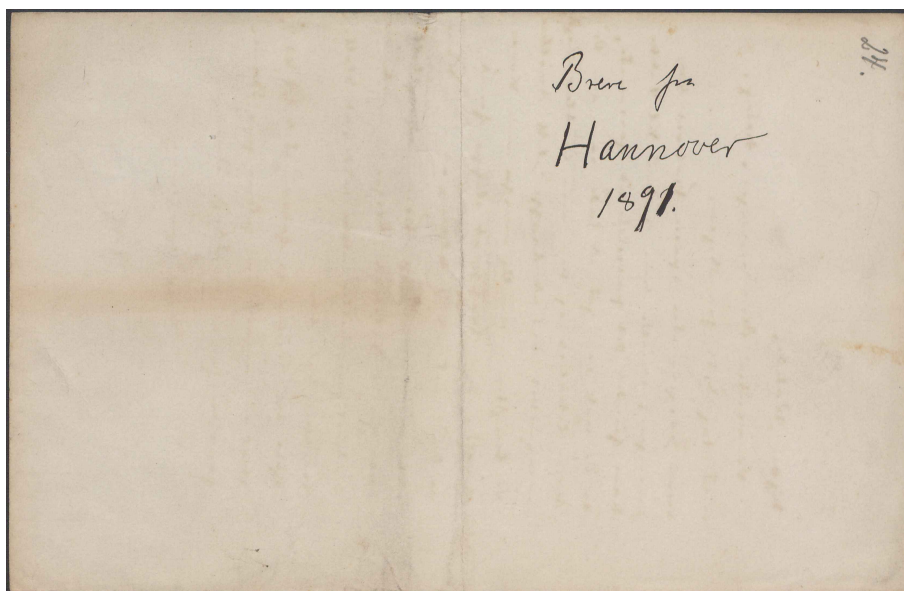 24.
Breve fra
Hannover
1891.